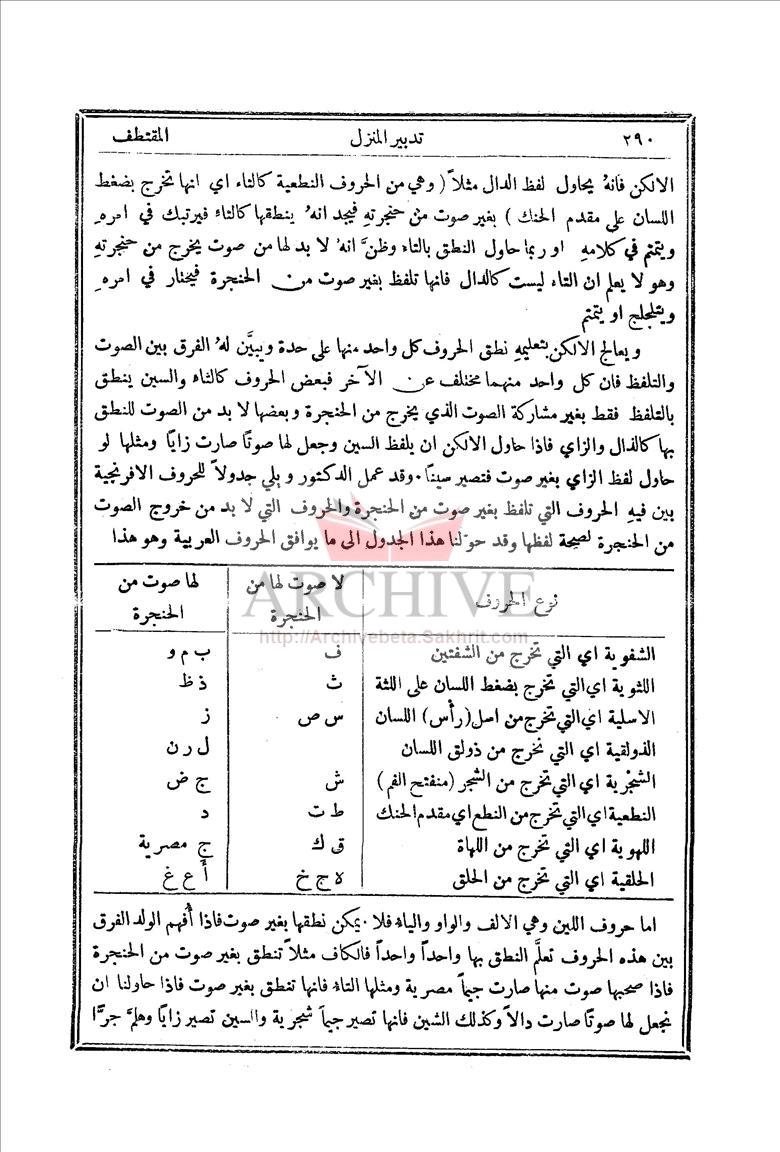 ٢٩٠ تدبير المنزل المقتطف
الالكن فانهُ يحاول لفظ الدال مثلاً ( وهي من الحروف النطعية كالتاء اي انها تخرج بضغط
اللسان على مقدم الحنك ) بغير صوت من حنجرتهِ فيجد انهُ ينطقها كالتاء فيرتبك في امرهِ
ويتمتم في كلامهِ او ربما حاول النطق بالتاء وظنَّ انهُ لا بد لها من صوت يخرج من حنجرتهِ
وهو لا يعلم ان التاء ليست كالدال فانها تلفظ بغير صوت من الحنجرة فيحتار في امرهِ
ويتلجلج او يتمتم
ويعالج الالكن بتعليمهِ نطق الحروف كل واحد منها على حدة ويبيَّن لهُ الفرق بين الصوت
والتلفظ فان كل واحد منهما مختلف عن الآخر فبعض الحروف كالثاء والسين ينطق
بالتلفظ فقط بغير مشاركة الصوت الذي يخرج من الحنجرة وبعضها لا بد من الصوت للنطق
بها كالذال والزاي فاذا حاول الالكن ان يلفظ السين وجعل لها صوتًا صارت زايًا ومثلها لو
حاول لفظ الزاي بغير صوت فتصير سينًا ٠ وقد عمل الدكتور ويلي جدولاً للحروف الافرنجية
بين فيهِ الحروف التي تلفظ بغير صوت من الحنجرة والحروف التي لا بد من خروج الصوت
من الحنجرة لصحة لفظها وقد حوّلنا هذا الجدول الى ما يوافق الحروف العربية وهو هذا
ARCHIVE
http://Archivebeta.Sakhrit.com
نوع الحروف لا صوت لها من الحنجرة لها صوت من الحنجرة
الشفوية اي التي تخرج من الشفتين ف ب م و
اللثوية اي التي تخرج بضغط اللسان على اللثة ث ذ ظ
الاسلية اي التي تخرج من اسل (رأْس) اللسان س ص ز
الذولقية اي التي تخرج من ذولق اللسان ل ر ن
الشجْرية اي التي تخرج من الشجر (منفتح الفم) ش ج ض
النطعية اي التي تخرج من النطع اي مقدم الحنك ط ت د
اللهوية اي التي تخرج من اللهاة ق ك ج مصرية
الحلقية اي التي تخرج من الحلق ه ح خ أ ع غ
اما حروف اللين وهي الالف والواو والياء فلا يمكن نطقها بغير صوت فاذا أُفهم الولد الفرق
بين هذه الحروف تعلَّم النطق بها واحداً واحداً فالكاف مثلاً تنطق بغير صوت من الحنجرة
فاذا صحبها صوت منها صارت جيماً مصرية ومثلها التاء فانها تنطق بغير صوت فاذا حاولنا ان
نجعل لها صوتًا صارت دالاً وكذلك الشين فانها تصير جيماً شجرية والسين تصير زايًا وهلمَّ جرًّا